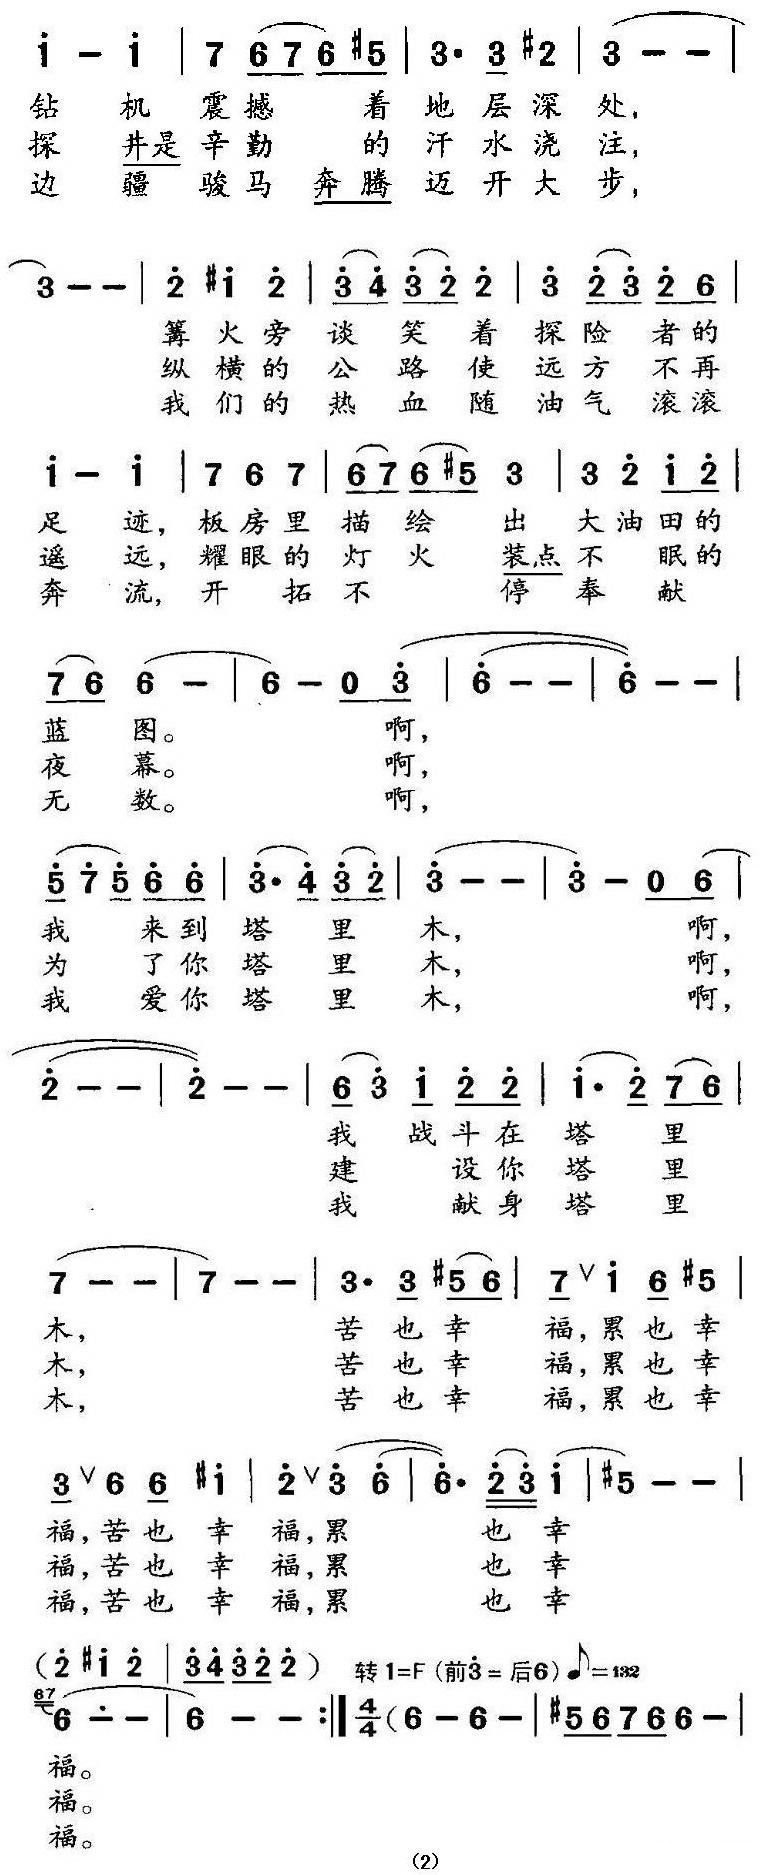 i - i | 7 6 7 6 #5 | 3· 3 #2 | 3 - - |
钻 机 震 撼 着 地 层 深 处,
探 井是 辛 勤 的 汗 水 浇 注,
边 疆 骏 马 奔 腾 迈 开 大 步,
3 - - | 2 #i 2 | 3 4 3 2 2 | 3 2 3 2 6 |
篝 火 旁 谈 笑 着 探 险 者 的
纵 横 的 公 路 使 远 方 不 再
我 们 的 热 血 随 油 气 滚 滚
i - i | 7 6 7 | 6 7 6 #5 3 | 3 2 i 2 |
足 迹, 板 房 里 描 绘 出 大 油 田 的
遥 远, 耀 眼 的 灯 火 装 点 不 眠 的
奔 流, 开 拓 不 停 奉 献
7 6 6 - | 6 - 0 3 | 6 - - | 6 - - |
蓝 图。 啊,
夜 幕。 啊,
无 数。 啊,
5 7 5 6 6 | 3· 4 3 2 | 3 - - | 3 - 0 6 |
我 来 到 塔 里 木, 啊,
为 了 你 塔 里 木, 啊,
我 爱 你 塔 里 木, 啊,
2 - - | 2 - - | 6 3 i 2 2 | i· 2 7 6 |
我 战 斗 在 塔 里
建 设 你 塔 里
我 献 身 塔 里
7 - - | 7 - - | 3· 3 #5 6 | 7 ∨ i 6 #5 |
木, 苦 也 幸 福, 累 也 幸
木, 苦 也 幸 福, 累 也 幸
木, 苦 也 幸 福, 累 也 幸
3 ∨ 6 6 #i | 2 ∨ 3 6 | 6· 2 3 i | #5 - - |
福, 苦 也 幸 福, 累 也 幸
福, 苦 也 幸 福, 累 也 幸
福, 苦 也 幸 福, 累 也 幸
(2 #i 2 | 3 4 3 2 2) 转1=F (前3=后6) ♪=132
67 6 - - | 6 - - :‖ 4/4 (6 - 6 - | #5 6 7 6 6 - |
福。
福。
福。
(2)